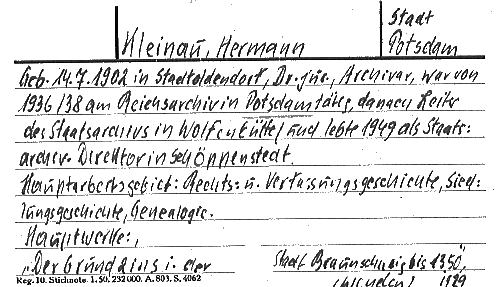 Kleinau, Hermann
Stadt
Potsdam
Geb. 14.7.1902 in Stadtoldendorf, Dr. jur., Archivar, war von
1936/38 am Reichsarchiv in Potsdam tätig, danach Leiter
des Staatsarchivs in Wolfenbüttel und lebte 1949 als Staats=
archiv-Direktor in Schöppenstedt.
Hauptarbeitsgebiet: Rechts- u. Verfassungsgeschichte, Sied=
lungsgeschichte, Genealogie.
Hauptwerke:,
„Der Grundzins i. der Stadt Braunschweig bis 1350",
Reg. 10. Stichnote. 1. 50. 232000. A. 803. S. 4062
1929